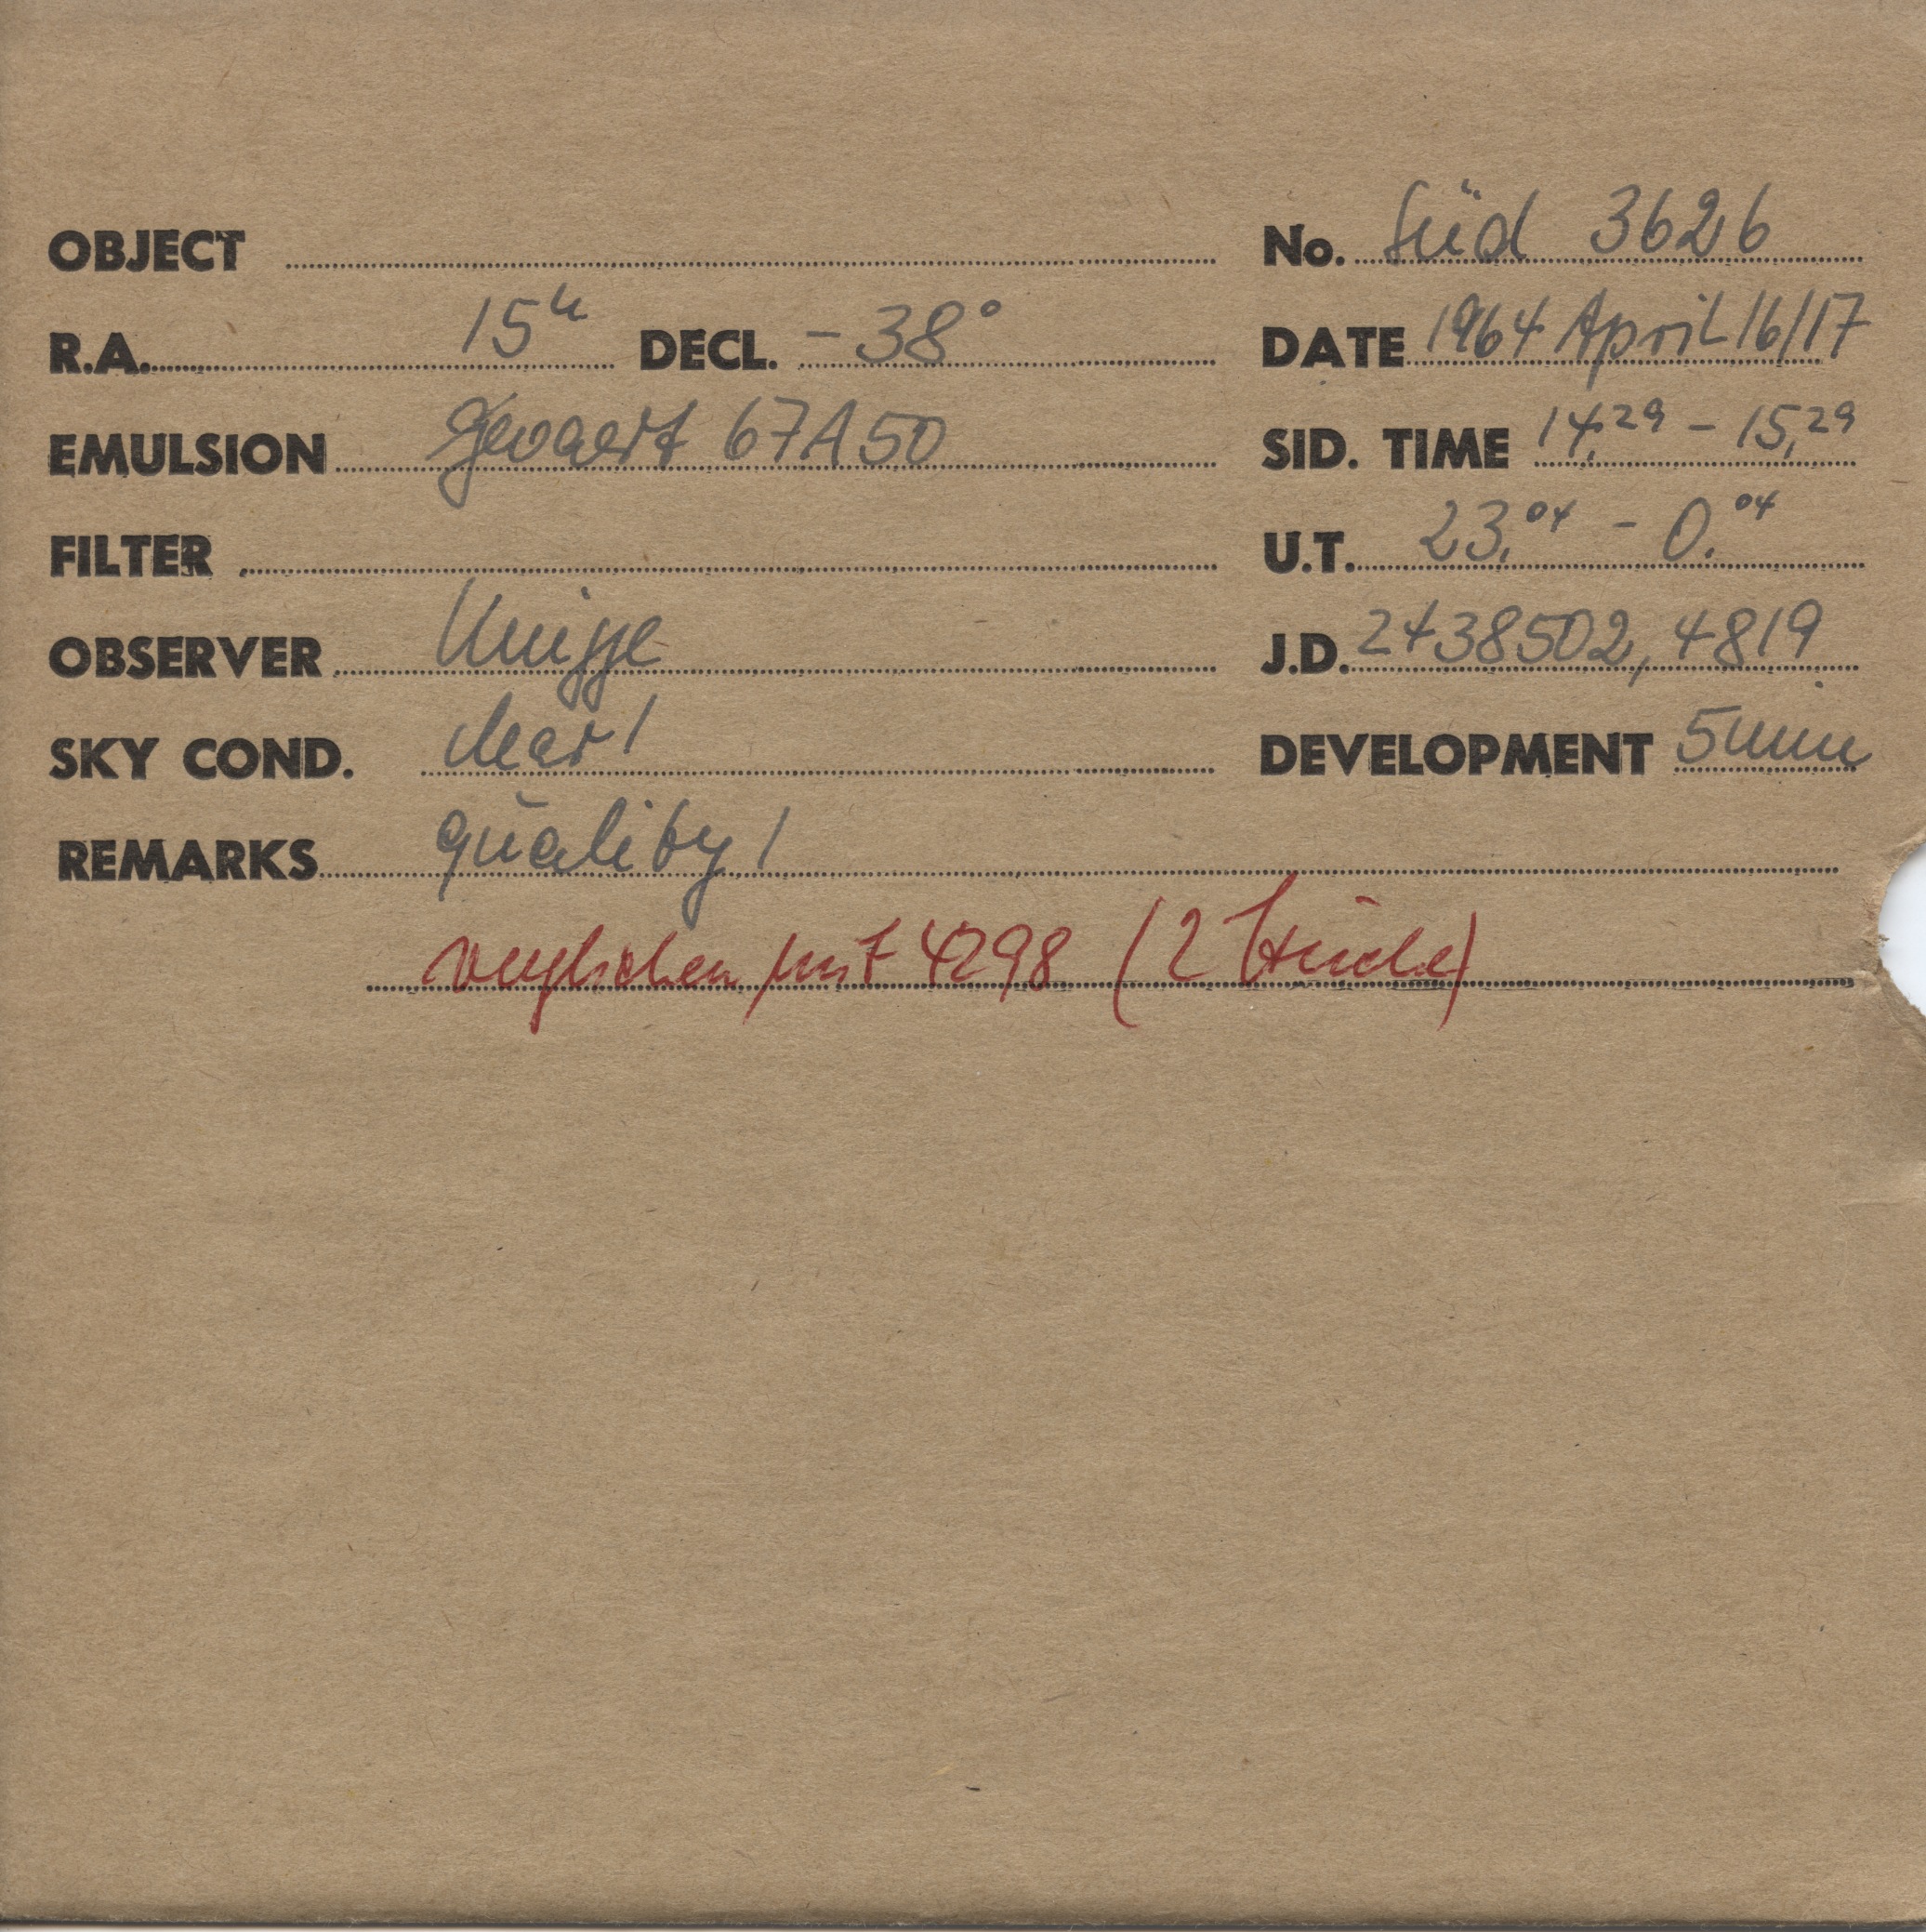 OBJECT No. Süd 3626
R.A. 15h DECL. -38° DATE 1964 April 16/17
EMULSION Gevaert 67A50 SID. TIME 14,29 - 15,29
FILTER U.T. 23.04 - 0.04
OBSERVER Knigge J.D. 2438502,4819
SKY COND. clear 1 DEVELOPMENT 5 min
REMARKS quality 1
verglichen mit 4298 (2 Stücke)